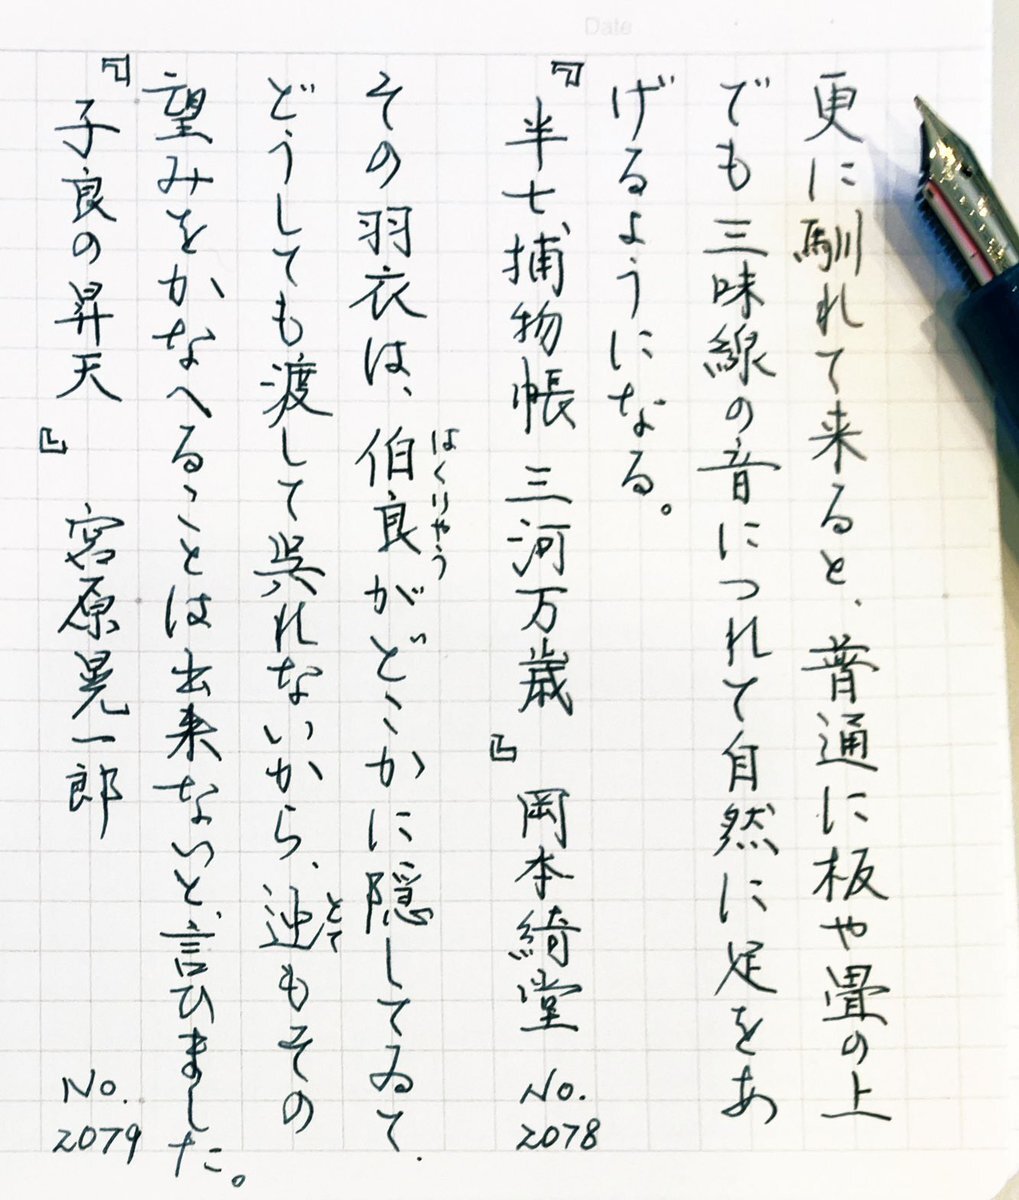 Date
更に馴れて来ると、普通に板や畳の上
でも三味線の音につれて自然に足をあ
げるようになる。
『半七捕物帳 三河万歳』 岡本綺堂 No.2078
その羽衣は、伯良がどこかに隠してゐて、
はくりやう
どうしても渡して呉れないから、迚もその
とて
望みをかなへることは出来ないと、言ひました。
『子良の昇天』 宮原晃一郎 No.2079